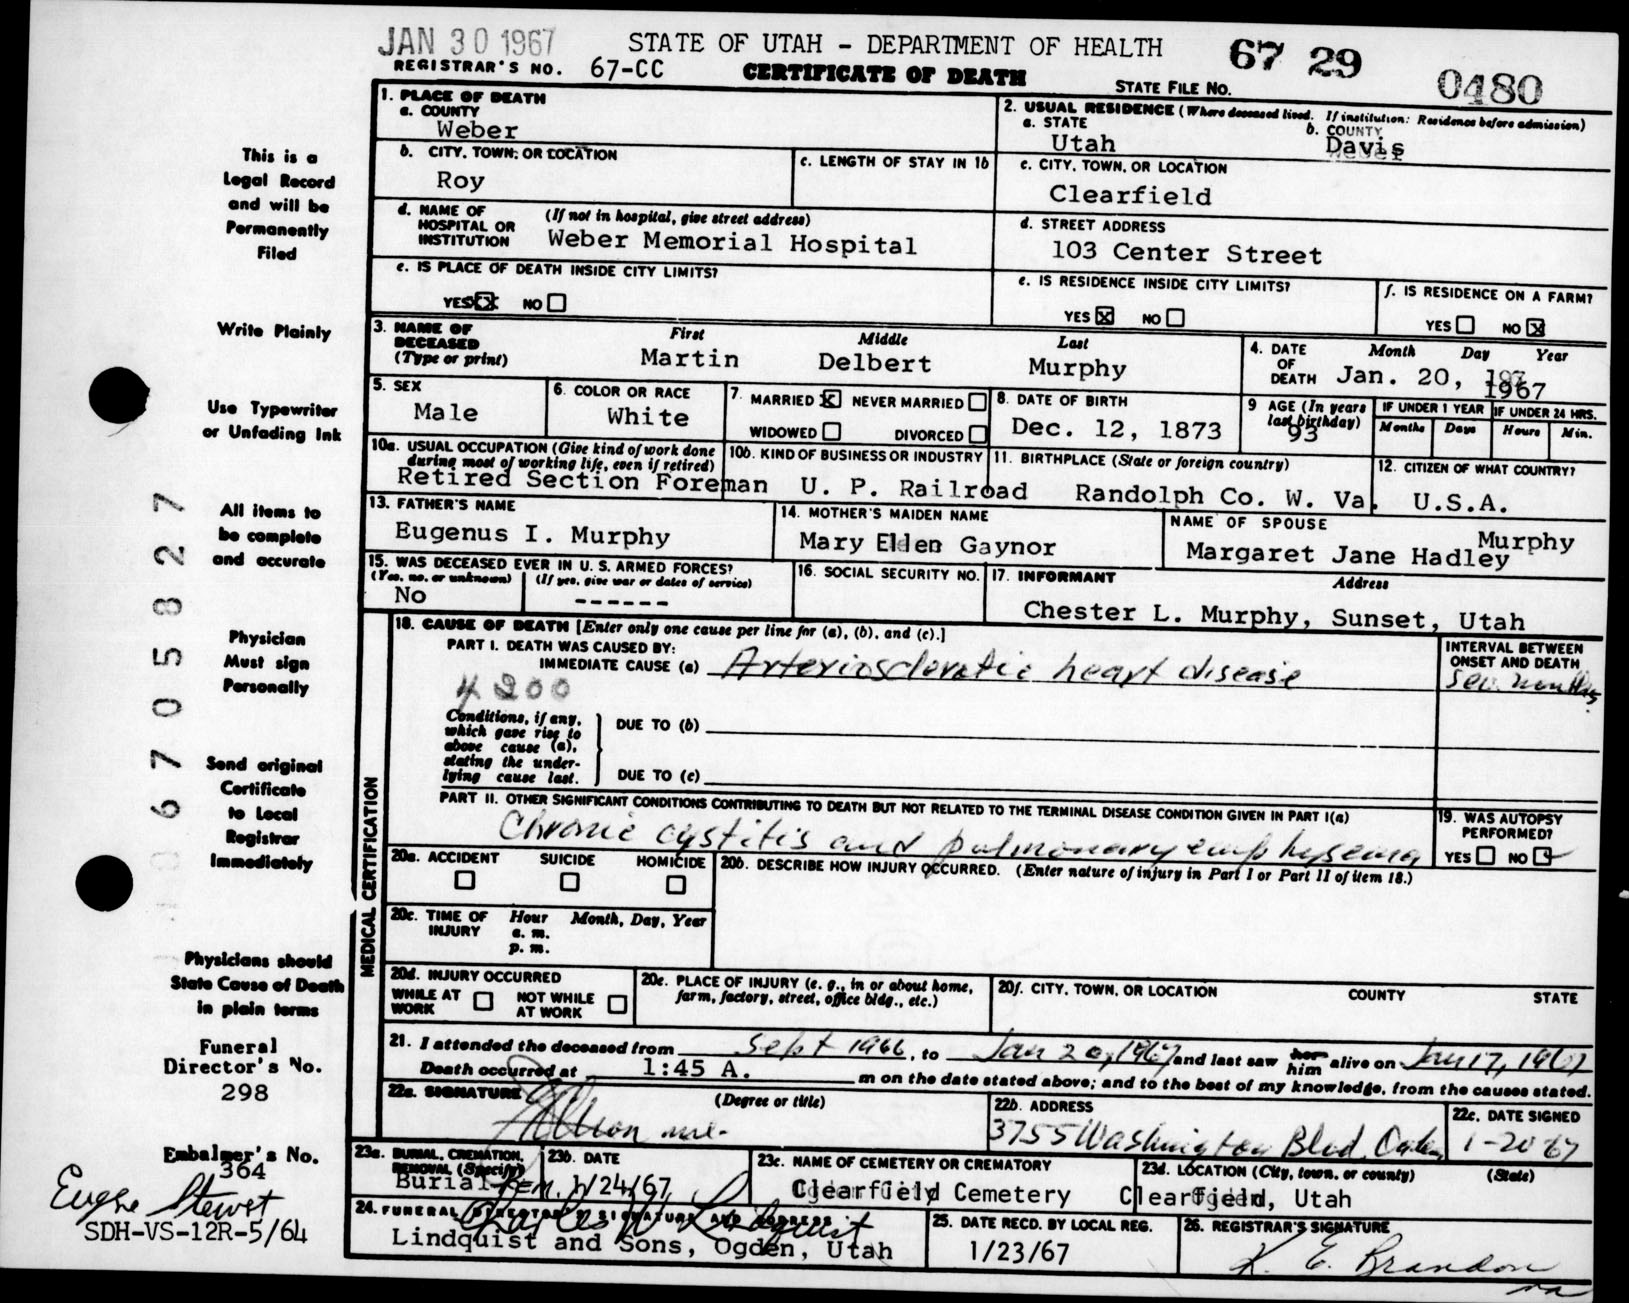 JAN 30 1967
STATE OF UTAH - DEPARTMENT OF HEALTH
67 29
0480
REGISTRAR'S NO. 67-CC
CERTIFICATE OF DEATH
STATE FILE NO.
1. PLACE OF DEATH
a. COUNTY
Weber
2. USUAL RESIDENCE (Where deceased lived. If institution: Residence before admission)
a. STATE
Utah
b. COUNTY
Davis
b. CITY, TOWN, OR LOCATION
Roy
c. LENGTH OF STAY IN 1b
c. CITY, TOWN, OR LOCATION
Clearfield
d. NAME OF HOSPITAL OR INSTITUTION
(If not in hospital, give street address)
Weber Memorial Hospital
d. STREET ADDRESS
103 Center Street
e. IS PLACE OF DEATH INSIDE CITY LIMITS?
YES NO
e. IS RESIDENCE INSIDE CITY LIMITS?
YES X NO
f. IS RESIDENCE ON A FARM?
YES NO X
3. NAME OF DECEASED
(Type or print)
First Middle Last
Martin Delbert Murphy
4. DATE OF DEATH
Month Day Year
Jan. 20, 1967
5. SEX
Male
6. COLOR OR RACE
White
7. MARRIED X NEVER MARRIED
WIDOWED DIVORCED
8. DATE OF BIRTH
Dec. 12, 1873
9 AGE (In years last birthday)
93
IF UNDER 1 YEAR
Months Days
IF UNDER 24 HRS.
Hours Min.
10a. USUAL OCCUPATION (Give kind of work done during most of working life, even if retired)
Retired Section Foreman
10b. KIND OF BUSINESS OR INDUSTRY
U. P. Railroad
11. BIRTHPLACE (State or foreign country)
Randolph Co. W. Va.
12. CITIZEN OF WHAT COUNTRY?
U.S.A.
13. FATHER'S NAME
Eugenus I. Murphy
14. MOTHER'S MAIDEN NAME
Mary Ellen Gaynor
NAME OF SPOUSE
Margaret Jane Hadley Murphy
15. WAS DECEASED EVER IN U. S. ARMED FORCES?
(Yes, no, or unknown) (If yes, give war or dates of service)
No ------
16. SOCIAL SECURITY NO.
17. INFORMANT Address
Chester L. Murphy, Sunset, Utah
18. CAUSE OF DEATH [Enter only one cause per line for (a), (b), and (c).]
PART I. DEATH WAS CAUSED BY:
IMMEDIATE CAUSE (a) Arteriosclerotic heart disease
4200
INTERVAL BETWEEN ONSET AND DEATH
sev. months
Conditions, if any, which gave rise to above cause (a), stating the underlying cause last.
DUE TO (b)
DUE TO (c)
PART II. OTHER SIGNIFICANT CONDITIONS CONTRIBUTING TO DEATH BUT NOT RELATED TO THE TERMINAL DISEASE CONDITION GIVEN IN PART I(a)
Chronic cystitis and pulmonary emphysema
19. WAS AUTOPSY PERFORMED?
YES NO
20a. ACCIDENT SUICIDE HOMICIDE
20b. DESCRIBE HOW INJURY OCCURRED. (Enter nature of injury in Part I or Part II of item 18.)
20c. TIME OF INJURY
Hour Month, Day, Year
a. m.
p. m.
20d. INJURY OCCURRED
WHILE AT WORK NOT WHILE AT WORK
20e. PLACE OF INJURY (e. g., in or about home, farm, factory, street, office bldg., etc.)
20f. CITY, TOWN, OR LOCATION COUNTY STATE
MEDICAL CERTIFICATION
21. I attended the deceased from Sept 1966, to Jan 20, 1967 and last saw her him alive on Jan 17, 1967
Death occurred at 1:45 A. m on the date stated above; and to the best of my knowledge, from the causes stated.
22a. SIGNATURE (Degree or title)
22b. ADDRESS
3755 Washington Blvd. Ogden
22c. DATE SIGNED
1-20-67
23a. BURIAL, CREMATION, REMOVAL (Specify)
Burial-Rem.
23b. DATE
1/24/67
23c. NAME OF CEMETERY OR CREMATORY
Clearfield Cemetery
23d. LOCATION (City, town, or county) (State)
Clearfield, Utah
24. FUNERAL DIRECTOR'S SIGNATURE AND ADDRESS
Charles W Lindquist
Lindquist and Sons, Ogden, Utah
25. DATE RECD. BY LOCAL REG.
1/23/67
26. REGISTRAR'S SIGNATURE
K. E. Brandon
This is a
Legal Record
and will be
Permanently
Filed
Write Plainly
Use Typewriter
or Unfading Ink
All items to
be complete
and accurate
Physician
Must sign
Personally
Send original
Certificate
to Local
Registrar
Immediately
Physicians should
State Cause of Death
in plain terms
Funeral
Director's No.
298
Embalmer's No.
364
Eugene Stewart
SDH-VS-12R-5/64
6705827